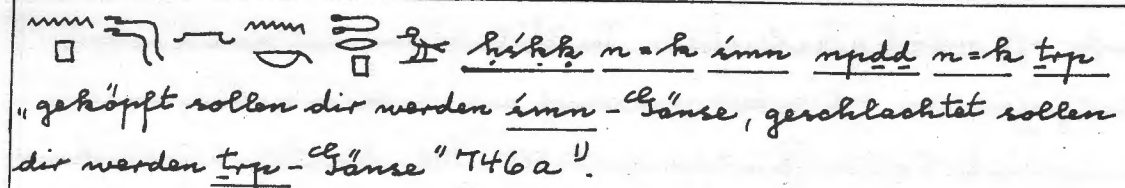 ḥśḳḳ n=k śmn npḏḏ n=k ṯrp
„geköpft sollen dir werden śmn-Gänse, geschlachtet sollen
dir werden ṯrp-Gänse" 746a ¹⁾.